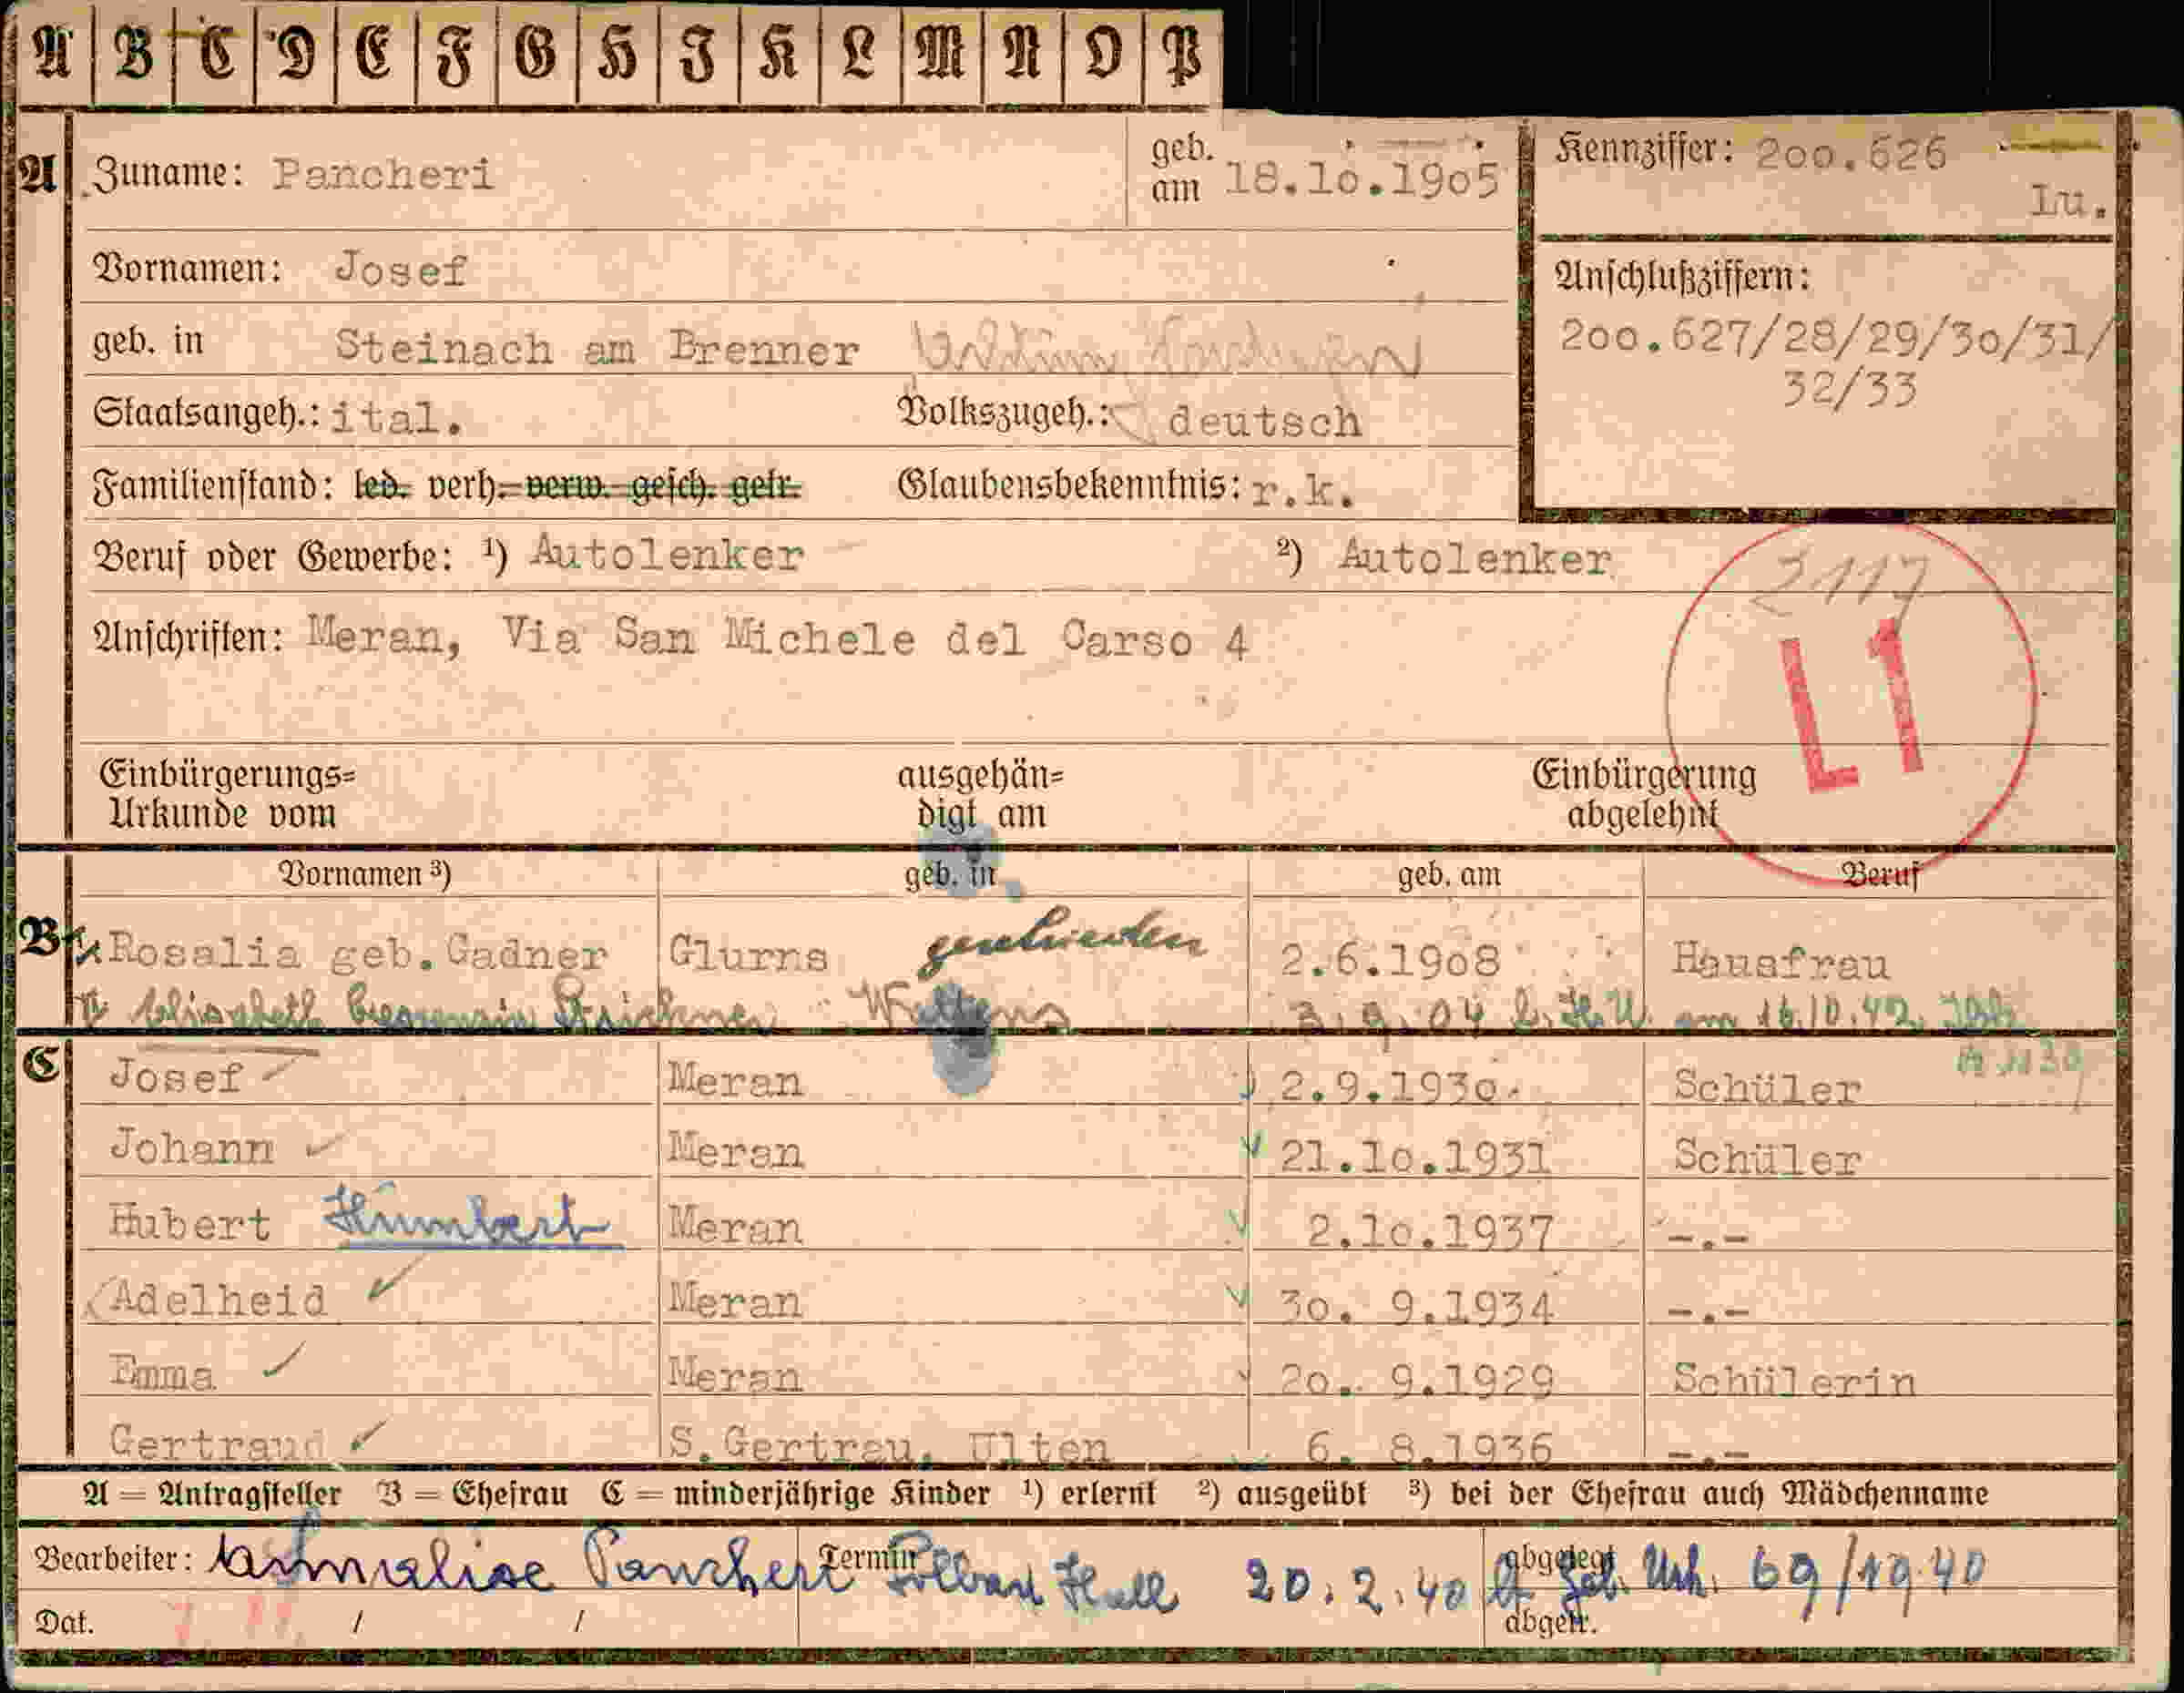 A B C D E F G H I K L M N O P
A Zuname: Pancheri geb. am 18.10.1905 Kennziffer: 200.626
Lu.
Vornamen: Josef Anschlußziffern:
geb. in Steinach am Brenner 200.627/28/29/30/31/
32/33
Staatsangeh.: ital. Volkszugeh.: deutsch
Familienstand: led. verh. verw. gesch. getr. Glaubensbekenntnis: r.k.
Beruf oder Gewerbe: ¹) Autolenker ²) Autolenker
2117
Anschriften: Meran, Via San Michele del Carso 4
L1
Einbürgerungs= ausgehän= Einbürgerung
Urkunde vom digt am abgelehnt
Vornamen ³) geb. in geb. am Beruf
B Rosalia geb. Gadner Glurns geschieden 2.6.1908 Hausfrau
Elisabeth Strickner Wattens 3.9.04 am 16.10.42
C Josef Meran 2.9.1930 Schüler
Johann Meran 21.10.1931 Schüler
Hubert Humbert Meran 2.10.1937 -.-
Adelheid Meran 30. 9.1934 -.-
Emma Meran 20. 9.1929 Schülerin
Gertraud S.Gertrau, Ulten 6. 8.1936 -.-
A = Antragsteller B = Ehefrau C = minderjährige Kinder ¹) erlernt ²) ausgeübt ³) bei der Ehefrau auch Mädchenname
Bearbeiter: Annaliese Pancheri Termin Hall 20.2.40 abgelegt Geb. Urk. 69/1940
Dat. / / abgetr.